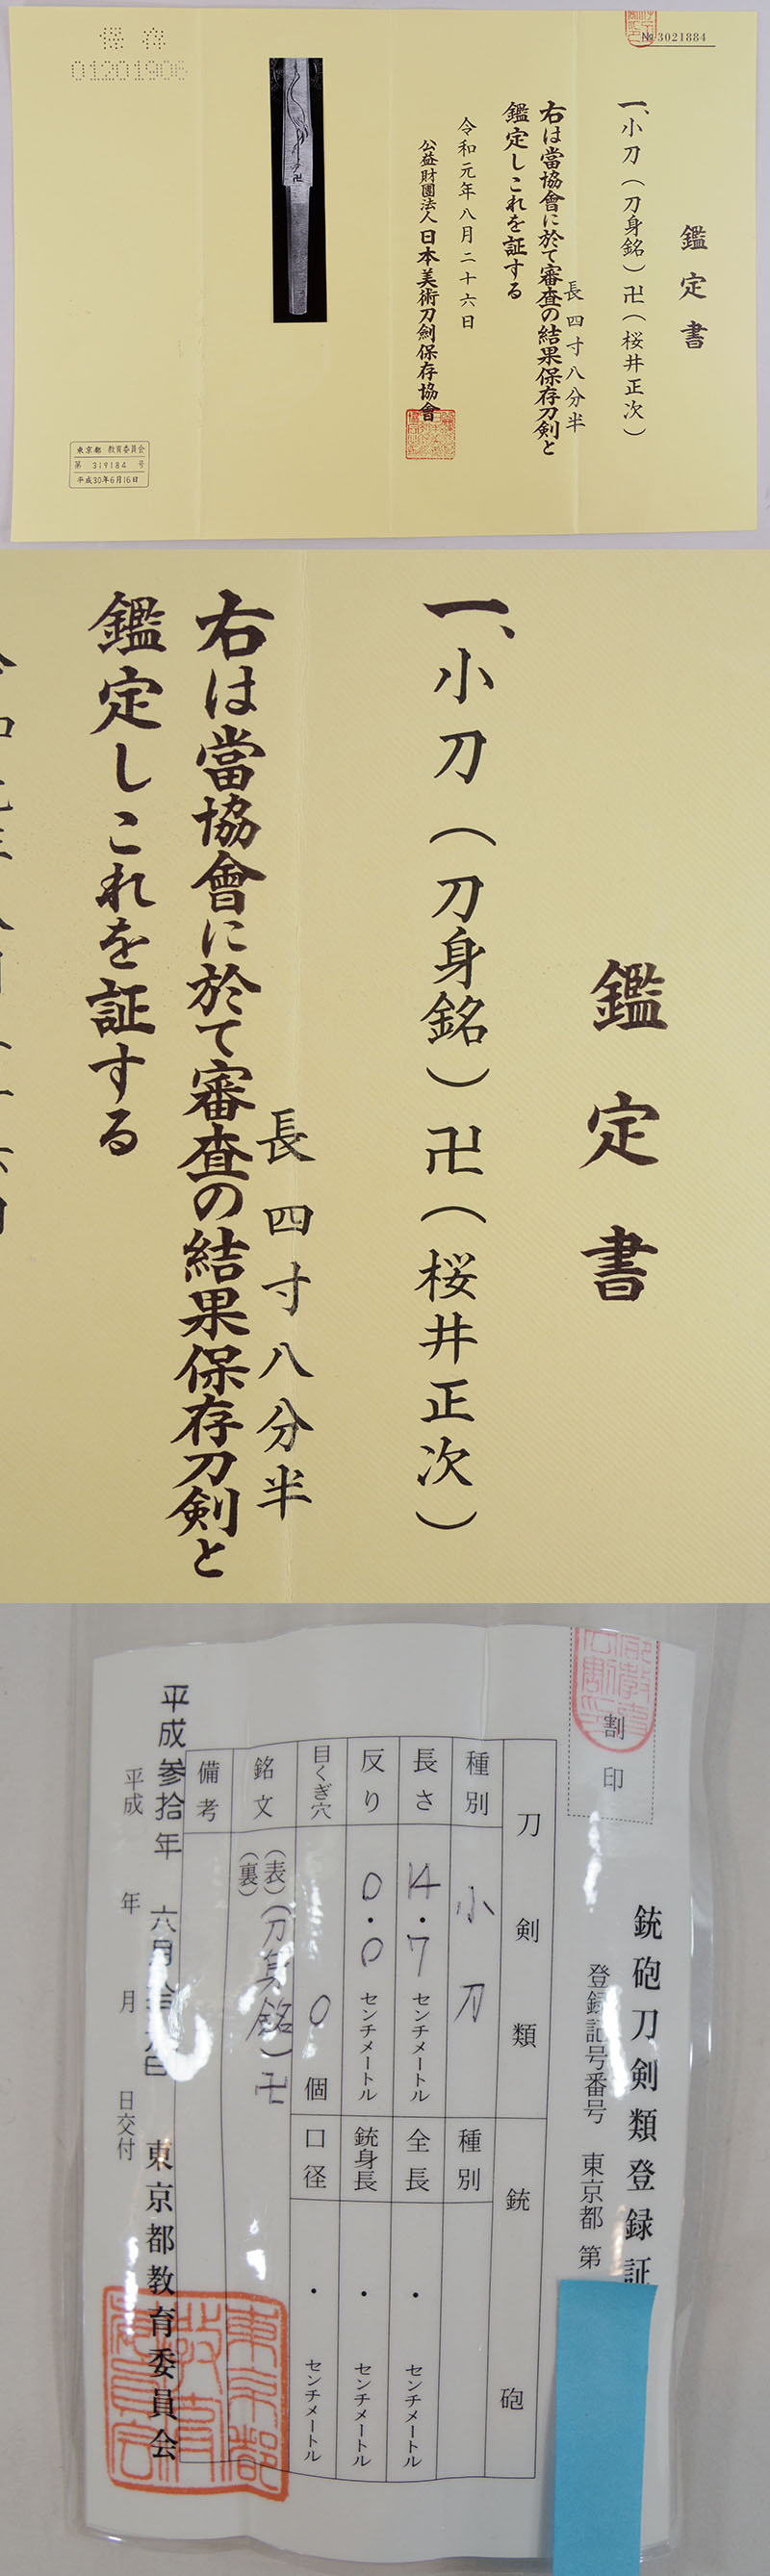 № 3021884
鑑定書
一、小刀（刀身銘）卍（桜井正次）
長四寸八分半
右は當協會に於て審査の結果保存刀剣と
鑑定しこれを証する
令和元年八月二十六日
公益財團法人日本美術刀劍保存協會
卍
保存
01201906
東京都 教育委員会
第 319184 号
平成30年6月16日
鑑定書
一、小刀（刀身銘）卍（桜井正次）
長四寸八分半
右は當協會に於て審査の結果保存刀剣と
鑑定しこれを証する
銃砲刀剣類登録証
登録記号番号 東京都 第
割印
刀剣類
銃砲
種別 小刀
種別
長さ 14.7 センチメートル
全長 ・ センチメートル
反り 0.0 センチメートル
銃身長 ・ センチメートル
目くぎ穴 0 個
口径 ・ センチメートル
銘文 （表）（刀身銘）卍
（裏）
備考
平成参拾年六月 日 東京都教育委員会
平成 年 月 日交付